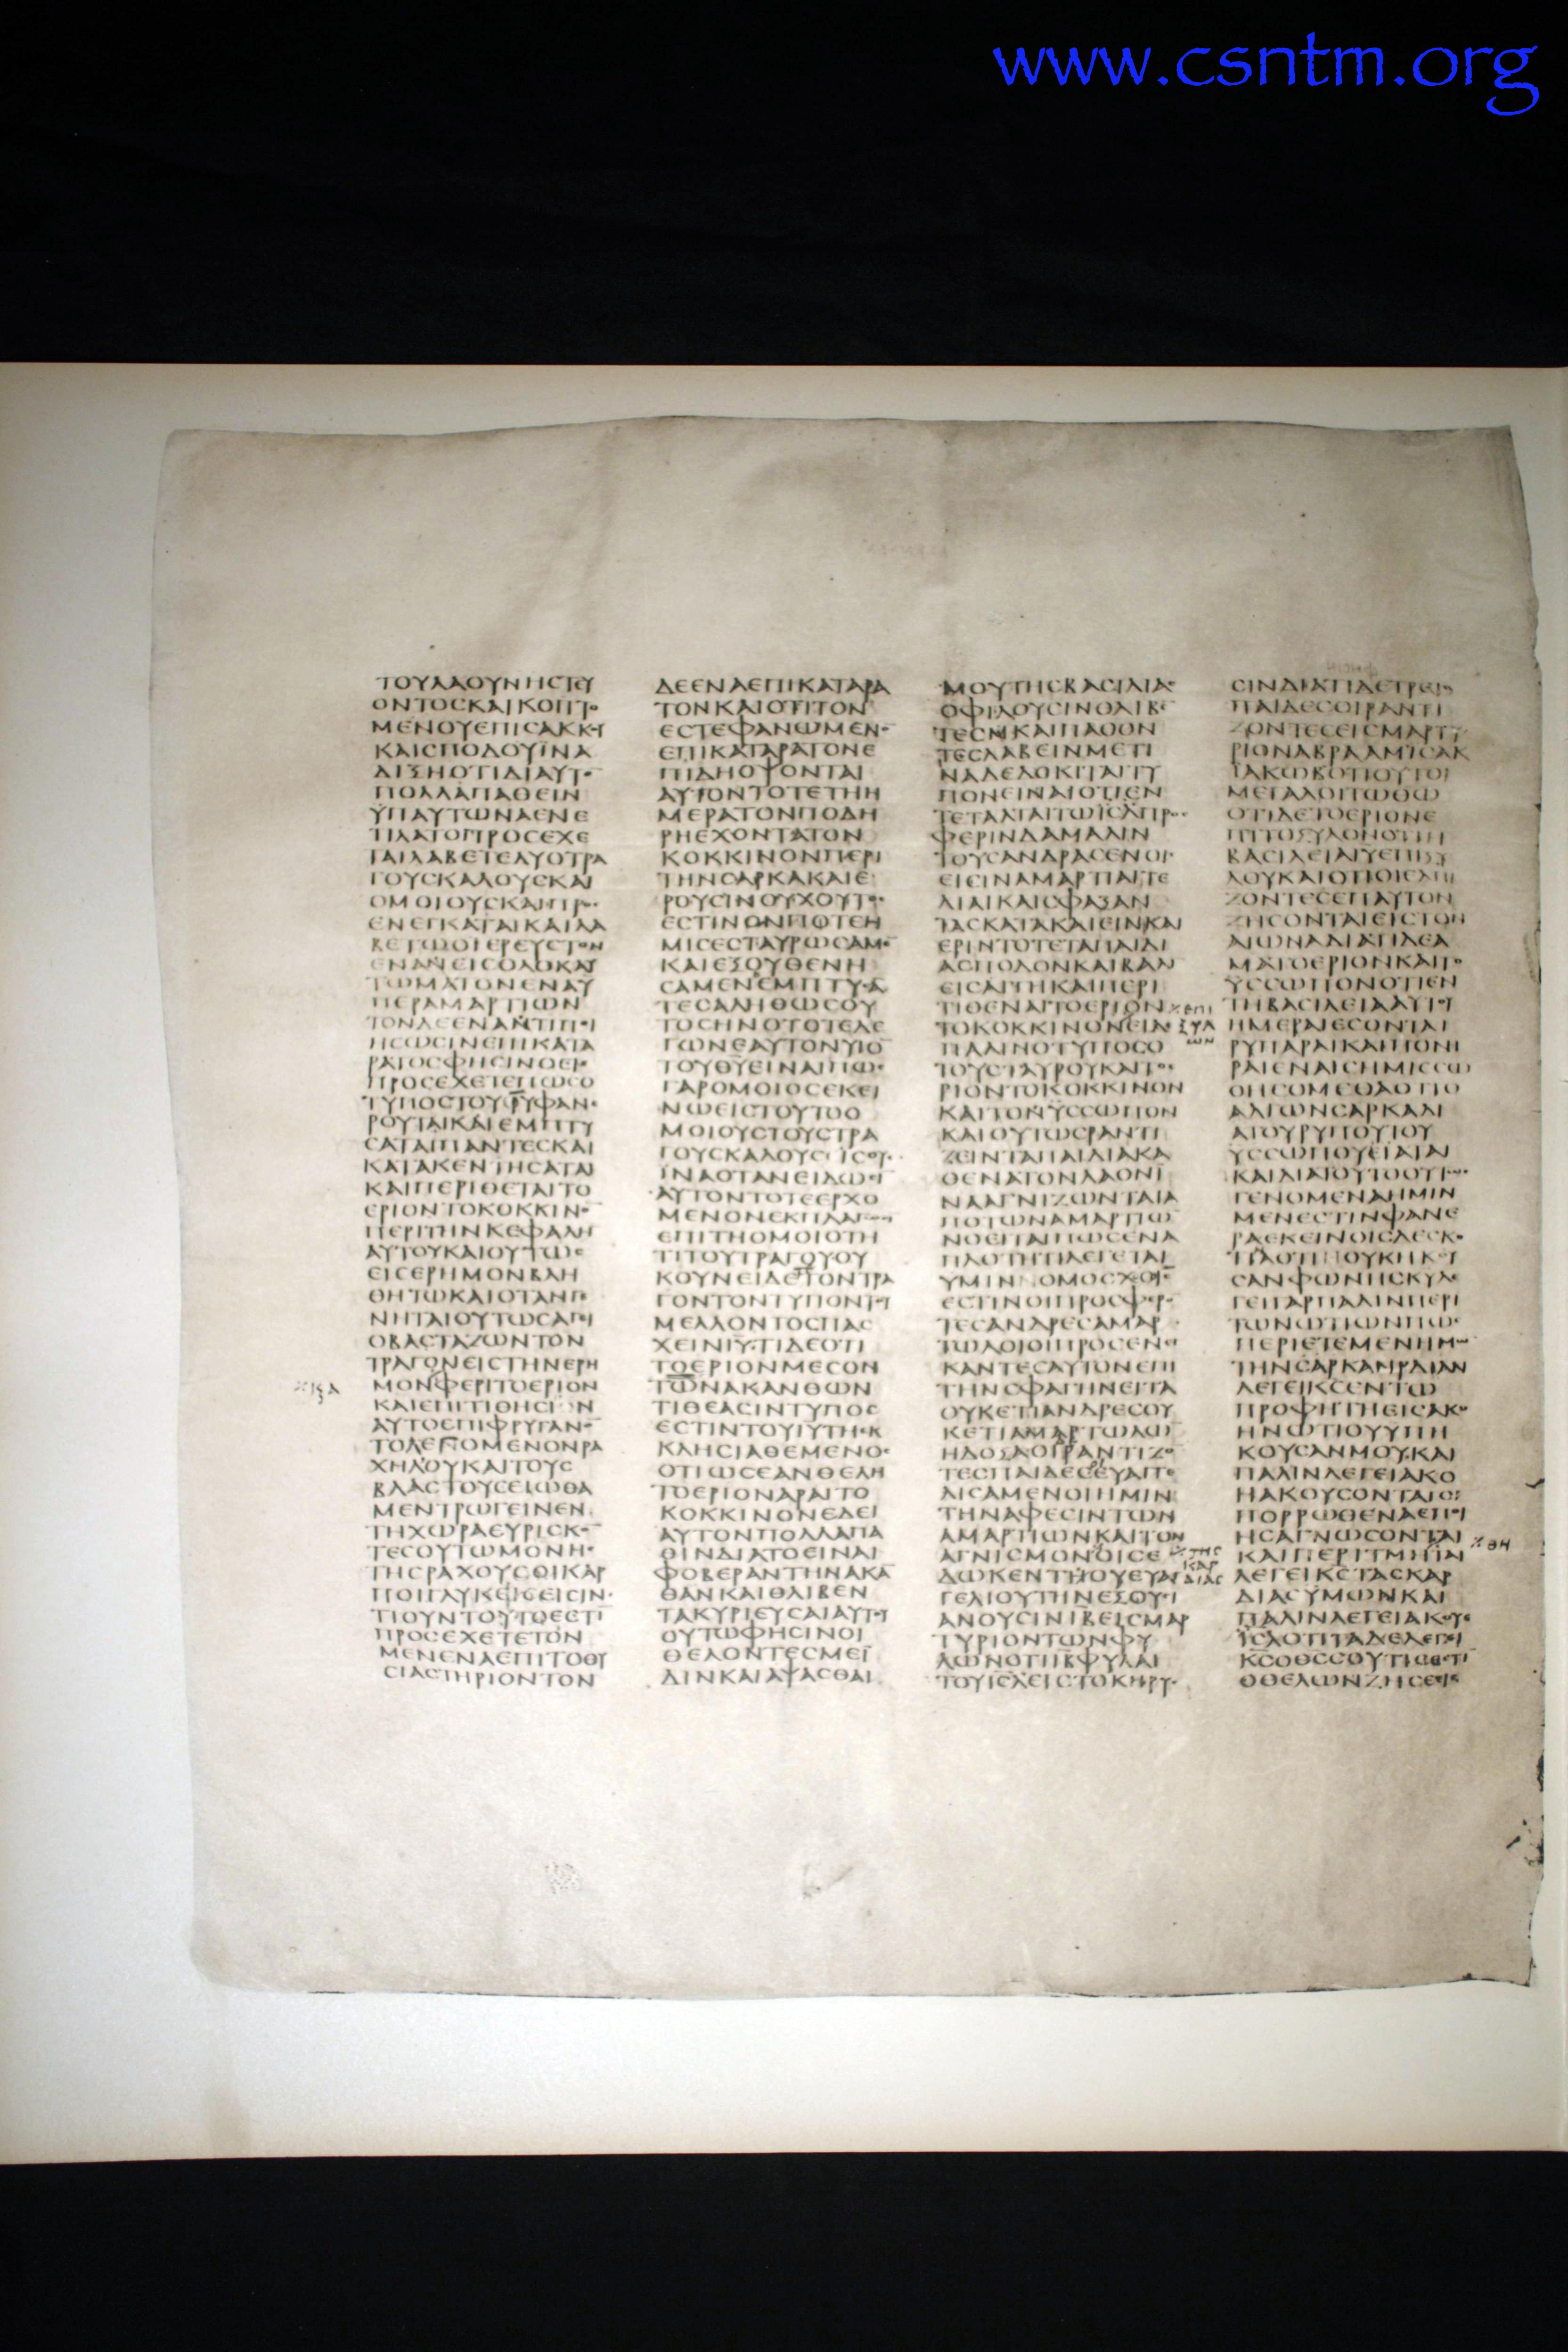 www.csntm.org
ΤΟΥΛΑΟΥΝΗCΤΕΥ
ΟΝΤΟCΚΑΙΚΟΠΤΟ
ΜΕΝΟΥΕΠΙCΑΚΚΟΥ
ΚΑΙCΠΟΔΟΥΪΝΑ
ΔΙΞΗΟΤΙΔΙΑΥΤΟ
ΠΟΛΛΑΠΑΘΕΙΝ
ΥΠΑΥΤΩΝΑΕΝΕ
ΤΙΛΑΤΟΠΡΟCΕΧΕ
ΤΑΙΛΑΒΕΤΕΔΥΟΤΡΑ
ΓΟΥCΚΑΛΟΥCΚΑΙ
ΟΜΟΙΟΥCΚΑΙΠΡΟ
ΕΝΕΓΚΑΤΑΙΚΑΙΛΑ
ΒΕΤΩΟΙΕΡΕΥCΤΟΝ
ΕΝΑΝΕΙCΟΛΟΚΑΥ
ΤΩΜΑΤΟΝΕΝΑΥ
ΠΕΡΑΜΑΡΤΙΩΝ
ΤΟΝΔΕΕΝΑΝΤΙΠΟΙ
ΗCΩCΙΝΕΠΙΚΑΤΑ
ΡΑΤΟCΦΗCΙΝΟΕΙC
ΠΡΟCΕΧΕΤΕΠΩCΟ
ΤΥΠΟCΤΟΥΙΥΦΑΝΕ
ΡΟΥΤΑΙΚΑΙΕΜΠΤΥ
CΑΤΑΙΠΑΝΤΕCΚΑΙ
ΚΑΤΑΚΕΝΤΗCΑΤΑΙ
ΚΑΙΠΕΡΙΘΕΤΑΙΤΟ
ΕΡΙΟΝΤΟΚΟΚΚΙΝΟ
ΠΕΡΙΤΗΝΚΕΦΑΛΗ
ΑΥΤΟΥΚΑΙΟΥΤΩC
ΕΙCΕΡΗΜΟΝΒΛΗ
ΘΗΤΩΚΑΙΟΤΑΝΓΕ
ΝΗΤΑΙΟΥΤΩCΑΓΕΙ
ΟΒΑCΤΑΖΩΝΤΟΝ
ΤΡΑΓΟΝΕΙCΤΗΝΕΡΗ
ΜΟΝΦΕΡΙΤΟΕΡΙΟΝ
ΚΑΙΕΠΙΤΙΘΗCΙΝ
ΑΥΤΟΕΠΙΦΡΥΓΑΝΟ
ΤΟΛΕΓΟΜΕΝΟΝΡΑ
ΧΗΛΟΥΚΑΙΤΟΥC
ΒΛΑCΤΟΥCΕΙΩΘΑ
ΜΕΝΤΡΩΓΕΙΝΕΝ
ΤΗΧΩΡΑΕΥΡΙCΚΟ
ΤΕCΟΥΤΩΜΟΝΗC
ΤΗCΡΑΧΟΥCΟΙΚΑΡ
ΠΟΙΓΛΥΚΕΙCΕΙCΙΝ
ΤΙΟΥΝΤΟΥΤΟΕCΤΙ
ΠΡΟCΕΧΕΤΕΤΟΝ
ΜΕΝΕΝΑΕΠΙΤΟΘΥ
CΙΑCΤΗΡΙΟΝΤΟΝ
ΔΕΕΝΑΕΠΙΚΑΤΑΡΑ
ΤΟΝΚΑΙΟΤΙΤΟΝ
ΕCΤΕΦΑΝΩΜΕΝΟ
ΕΠΙΚΑΤΑΡΑΤΟΝΕ
ΠΙΔΗΟΨΟΝΤΑΙ
ΑΥΤΟΝΤΟΤΕΤΗΗ
ΜΕΡΑΤΟΝΠΟΔΗ
ΡΗΕΧΟΝΤΑΤΟΝ
ΚΟΚΚΙΝΟΝΠΕΡΙ
ΤΗΝCΑΡΚΑΚΑΙΕ
ΡΟΥCΙΝΟΥΧΟΥΤΟC
ΕCΤΙΝΟΝΠΟΤΕΗ
ΜΙCΕCΤΑΥΡΩCΑΜΕ
ΚΑΙΕΞΟΥΘΕΝΗ
CΑΜΕΝΕΜΠΤΥCΑ
ΤΕCΑΛΗΘΩCΟΥ
ΤΟCΗΝΟΤΟΤΕΛΕ
ΓΩΝΕΑΥΤΟΝΥΙΟ
ΤΟΥΘΥΕΙΝΑΙΠΩC
ΓΑΡΟΜΟΙΟCΕΚΕΙ
ΝΩΕΙCΤΟΥΤΟΟ
ΜΟΙΟΥCΤΟΥCΤΡΑ
ΓΟΥCΚΑΛΟΥCΙCΟΥC
ΪΝΑΟΤΑΝΕΙΔΩCΙ
ΑΥΤΟΝΤΟΤΕΕΡΧΟ
ΜΕΝΟΝΕΚΠΛΑΓΩCΙ
ΕΠΙΤΗΟΜΟΙΟΤΗ
ΤΙΤΟΥΤΡΑΓΟΥΟΥ
ΚΟΥΝΕΙΔΕΤΟΝΤΡΑ
ΓΟΝΤΟΝΤΥΠΟΝΤΟΥ
ΜΕΛΛΟΝΤΟCΠΑC
ΧΕΙΝΙΥΤΙΔΕΟΤΙ
ΤΟΕΡΙΟΝΜΕCΟΝ
ΤΩΝΑΚΑΝΘΩΝ
ΤΙΘΕΑCΙΝΤΥΠΟC
ΕCΤΙΝΤΟΥΙΥΤΗΕΚ
ΚΛΗCΙΑΘΕΜΕΝΟC
ΟΤΙΩCΕΑΝΘΕΛΗ
ΤΟΕΡΙΟΝΑΡΑΙΤΟ
ΚΟΚΚΙΝΟΝΕΔΕΙ
ΑΥΤΟΝΠΟΛΛΑΠΑ
ΘΙΝΔΙΑΤΟΕΙΝΑΙ
ΦΟΒΕΡΑΝΤΗΝΑΚΑ
ΘΑΝΚΑΙΘΛΙΒΕΝ
ΤΑΚΥΡΙΕΥCΑΙΑΥΤΟΥ
ΟΥΤΩΦΗCΙΝΟΙ
ΘΕΛΟΝΤΕCΜΕΙ
ΔΙΝΚΑΙΑΨΑCΘΑΙ
ΜΟΥΤΗCΒΑCΙΛΙΑC
ΟΦΙΛΟΥCΙΝΘΛΙΒΕ
ΤΕCΚΑΙΠΑΘΟΝ
ΤΕCΛΑΒΕΙΝΜΕΤΙ
ΝΑΔΕΔΟΚΙΤΑΙΤΥ
ΠΟΝΕΙΝΑΙΟΤΙΕΝ
ΤΕΤΑΛΤΑΙΤΩΙCΛΠΡΟC
ΦΕΡΙΝΔΑΜΑΛΙΝ
ΤΟΥCΑΝΔΡΑCΕΝΟΙC
ΕΙCΙΝΑΜΑΡΤΙΑΙΤΕ
ΛΙΑΙΚΑΙCΦΑΞΑΝ
ΤΑCΚΑΤΑΚΑΙΕΙΝΚΑΙ
ΕΡΙΝΤΟΤΕΤΑΠΑΙΔΙ
ΑCΠΟΔΟΝΚΑΙΒΑΛ
ΕΙCΑΓΓΗΚΑΙΠΕΡΙ
ΤΙΘΕΝΑΙΤΟΕΡΙΟΝ ΕΠΙ
ΤΟΚΟΚΚΙΝΟΝΕΙΔΕ ΞΥΛ
ΠΑΛΙΝΟΤΥΠΟCΟ ΩΝ
ΤΟΥCΤΑΥΡΟΥΚΑΙΤΟΕ
ΡΙΟΝΤΟΚΟΚΚΙΝΟΝ
ΚΑΙΤΟΝΥCCΩΠΟΝ
ΚΑΙΟΥΤΩCΡΑΝΤΙ
ΖΕΙΝΤΑΠΑΙΔΙΑΚΑ
ΘΕΝΑΤΟΝΛΑΟΝΙ
ΝΑΑΓΝΙΖΩΝΤΑΙΑ
ΠΟΤΩΝΑΜΑΡΤΙΩ
ΝΟΕΙΤΑΙΠΩCΕΝΑ
ΠΛΟΤΗΤΙΛΕΓΕΤΑΙ
ΥΜΙΝΟΜΟCΧΟC
ΕCΤΙΝΟΙΠΡΟCΦΕΡΟ
ΤΕCΑΝΔΡΕCΑΜΑΡ
ΤΩΛΟΙΟΙΠΡΟCΕΝΕ
ΚΑΝΤΕCΑΥΤΟΝΕΠΙ
ΤΗΝCΦΑΓΗΝΕΙΤΑ
ΟΥΚΕΤΙΑΝΔΡΕCΟΥ
ΚΕΤΙΑΜΑΡΤΩΛΩ
ΗΔΟΞΑΟΙΡΑΝΤΙΖΟ
ΤΕCΠΑΙΔΕCΕΥΑΓΓΕ
ΛΙCΑΜΕΝΟΙΗΜΙΝ
ΤΗΝΑΦΕCΙΝΤΩΝ
ΑΜΑΡΤΙΩΝΚΑΙΤΟΝ
ΑΓΝΙCΜΟΝΟΙCΕ ΤΗC
ΔΩΚΕΝΤΗΟΥΕΥΑΓ ΚΑΡΔΙΑC
ΓΕΛΙΟΥΤΗΝΕΞΟΥCΙ
ΑΝΟΥCΙΝΙΒΕΙCΜΑΡ
ΤΥΡΙΟΝΤΩΝΦΥ
ΛΩΝΟΤΙΙΒΦΥΛΑΙ
ΤΟΥΙCΛΕΙCΤΟΚΗΡΥC
CΙΝΔΙΑΤΙΔΕΤΡΕΙC
ΠΑΙΔΕCΟΙΡΑΝΤΙ
ΖΟΝΤΕCΕΙCΜΑΡΤΥ
ΡΙΟΝΑΒΡΑΑΜΙCΑΚ
ΪΑΚΩΒΟΤΙΟΥΤΟΙ
ΜΕΓΑΛΟΙΤΩΘΩ
ΟΤΙΔΕΤΟΕΡΙΟΝΕ
ΠΙΤΟΞΥΛΟΝΟΤΙΗ
ΒΑCΙΛΕΙΑΙΥΕΠΙΞΥ
ΛΟΥΚΑΙΟΤΙΟΙΕΛΠΙ
ΖΟΝΤΕCΕΠΑΥΤΟΝ
ΖΗCΟΝΤΑΙΕΙCΤΟΝ
ΑΙΩΝΑΔΙΑΤΙΔΕΑ
ΜΑΤΟΕΡΙΟΝΚΑΙΤΟ
ΥCCΩΠΟΝΟΤΙΕΝ
ΤΗΒΑCΙΛΕΙΑΑΥΤΟΥ
ΗΜΕΡΑΙΕCΟΝΤΑΙ
ΡΥΠΑΡΑΙΚΑΙΠΟΝΗ
ΡΑΙΕΝΑΙCΗΜΙCCΩ
ΘΗCΟΜΕΘΑΟΤΙΟ
ΑΛΓΩΝCΑΡΚΑΔΙ
ΑΤΟΥΡΥΠΟΥΤΟΥ
ΥCCΩΠΟΥΕΙΑΤΑΙ
ΚΑΙΔΙΑΤΟΥΤΟΟΥΤΩC
ΓΕΝΟΜΕΝΑΗΜΙΝ
ΜΕΝΕCΤΙΝΦΑΝΕ
ΡΑΕΚΕΙΝΟΙCΔΕCΚΟ
ΤΙΑΟΤΙΟΥΚΗΚΟΥ
CΑΝΦΩΝΗCΚΥΛΕ
ΓΕΙΓΑΡΠΑΛΙΝΠΕΡΙ
ΤΩΝΩΤΙΩΝΠΩC
ΠΕΡΙΕΤΕΜΕΝΗΜΩΝ
ΤΗΝCΑΡΚΑΚΑΡΔΙΑΝ
ΛΕΓΕΙΚCΕΝΤΩ
ΠΡΟΦΗΤΗΕΙCΑΚΟ
ΗΝΩΤΙΟΥΥΠΗ
ΚΟΥCΑΝΜΟΥΚΑΙ
ΠΑΛΙΝΛΕΓΕΙΑΚΟ
ΗΑΚΟΥCΟΝΤΑΙΟΙ
ΠΟΡΡΩΘΕΝΑΕΠΟΙ
ΗCΑΓΝΩCΟΝΤΑΙ
ΚΑΙΠΕΡΙΤΜΗΤΑΙ ΘΗ
ΛΕΓΕΙΚCΤΑCΚΑΡ
ΔΙΑCΥΜΩΝΚΑΙ
ΠΑΛΙΝΛΕΓΕΙΑΚΟΥΕ
ΙCΛΟΤΙΤΑΔΕΛΕΓΕΙ
ΚCΟΘCCΟΥΤΙCΕCΤΙ
ΟΘΕΛΩΝΖΗCΕΙC